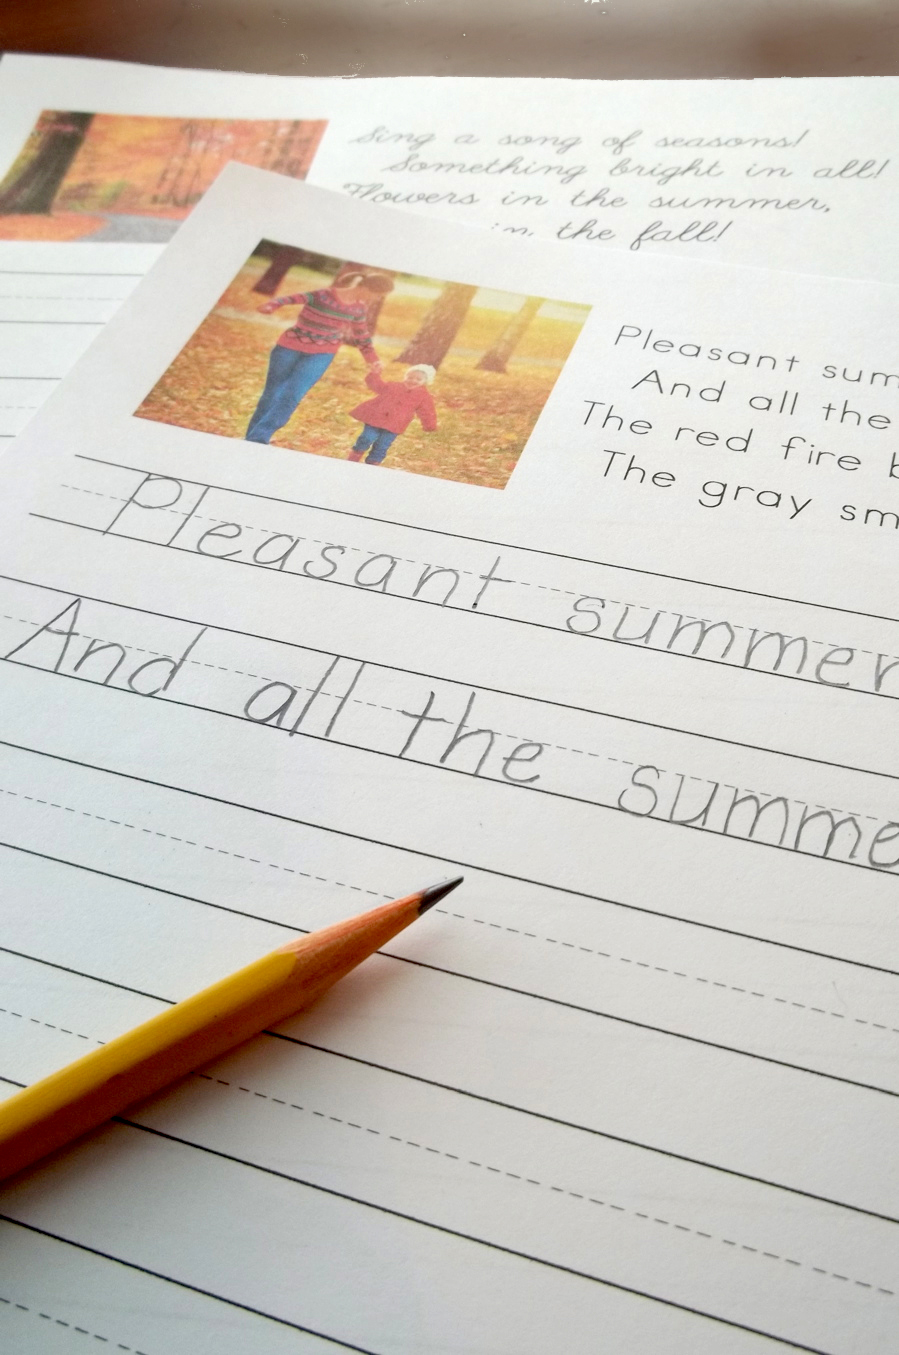 Sing a song of seasons!
Something bright in all!
Flowers in the summer,
in the fall!
Pleasant sum
And all the
The red fire b
The gray sm
Pleasant summer
And all the summe